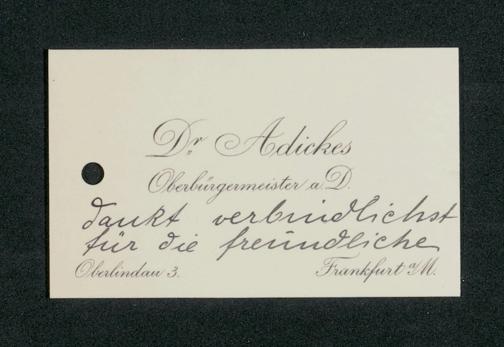 Dr. Adickes
Oberbürgermeister a. D.
dankt verbindlichst
für die freundliche
Oberlindau 3.
Frankfurt a/M.